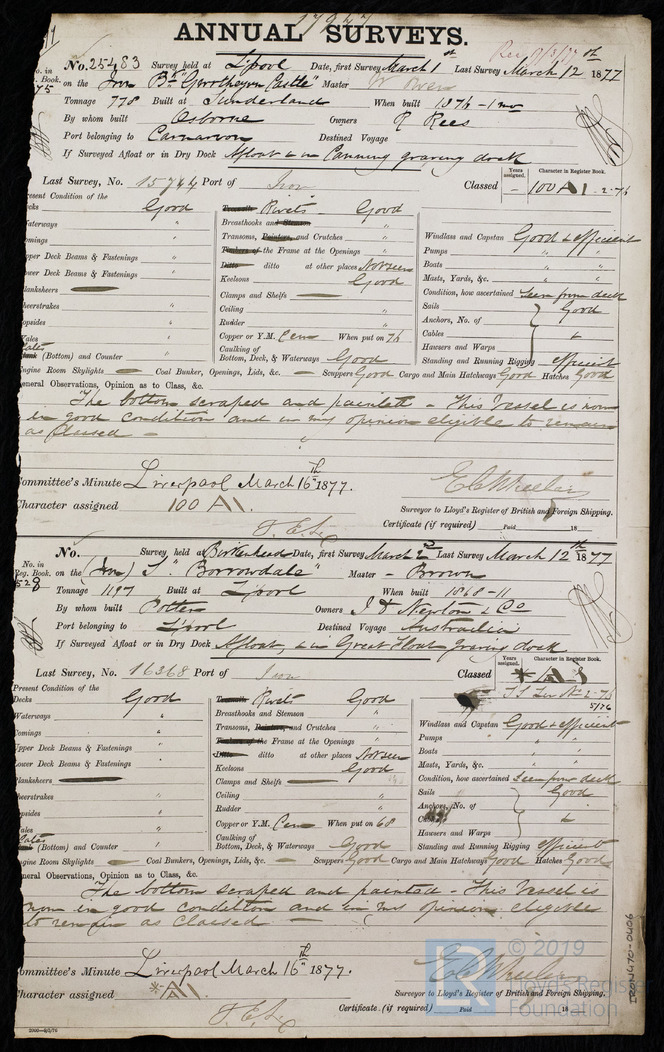 ANNUAL SURVEYS.
No. 25483 Survey held at L'pool Date, first Survey March 1st Last Survey March 12th 1877
on the Iron Bk Master W Owen
Tonnage 778 Built at Sunderland When built 1876-1mo
By whom built Osborne Owners R Rees
Port belonging to Carnarvon Destined Voyage
If Surveyed Afloat or in Dry Dock Afloat & in Canning graving dock
Last Survey, No. 15744 Port of Iron Classed Years assigned. - Character in Register Book. 100 A1 2-76
Present Condition of the
Decks Good Rivets Good
Waterways " Breasthooks and Stemson "
Comings " Transoms, Pointers, and Crutches " Windlass and Capstan Good & efficient
Upper Deck Beams & Fastenings " Timbers of the Frame at the Openings " Pumps " "
Lower Deck Beams & Fastenings " Ditto ditto at other places Not seen Boats " "
Planksheers Keelsons Good Masts, Yards, &c. " "
Sheerstrakes " Clamps and Shelfs Condition, how ascertained Seen from deck
Topsides " Ceiling " Sails Good
Wales " Rudder " Anchors, No. of
Plates Copper or Y.M. Cem When put on 76 Cables "
(Bottom) and Counter " Caulking of Bottom, Deck, & Waterways Good Hawsers and Warps
Standing and Running Rigging efficient
Engine Room Skylights Coal Bunker, Openings, Lids, &c. Scuppers Good Cargo and Main Hatchways Good Hatches Good
General Observations, Opinion as to Class, &c.
The bottom scraped and painted - This Vessel is now
in good condition and in my opinion eligible to remain
as Classed -
Committee's Minute Liverpool March 16th 1877.
Character assigned 100 A1.
E C Wheeler
Surveyor to Lloyd's Register of British and Foreign Shipping.
Certificate (if required) Paid 18
No. Survey held at Birkenhead Date, first Survey March 2nd Last Survey March 12th 1877
No. in Reg. Book. 528 on the (Iron) S "Borrowdale" Master - Brown
Tonnage 1197 Built at L'pool When built 1868-11
By whom built Potter Owners J & Newton & Co
Port belonging to L'pool Destined Voyage Australia
If Surveyed Afloat or in Dry Dock Afloat, & in Great Float graving dock
Last Survey, No. 16368 Port of Iron Classed Years assigned. Character in Register Book.
5/76
Present Condition of the
Decks Good Rivets Good
Waterways " Breasthooks and Stemson "
Comings " Transoms, Pointers, and Crutches " Windlass and Capstan Good & efficient
Upper Deck Beams & Fastenings " Timbers of the Frame at the Openings " Pumps " "
Lower Deck Beams & Fastenings " Ditto ditto at other places Not seen Boats " "
Planksheers Keelsons Good Masts, Yards, &c. " "
Sheerstrakes " Clamps and Shelfs Condition, how ascertained Seen from deck
Topsides " Ceiling " Sails Good
Wales " Rudder " Anchors, No. of
Plates Copper or Y.M. Cem When put on 68 Cables "
(Bottom) and Counter " Caulking of Bottom, Deck, & Waterways Good Hawsers and Warps
Standing and Running Rigging efficient
Engine Room Skylights Coal Bunkers, Openings, Lids, &c. Scuppers Good Cargo and Main Hatchways Good Hatches Good
General Observations, Opinion as to Class, &c.
The bottom scraped and painted - This Vessel is
now in good condition and in my opinion eligible
to remain as Classed -
Committee's Minute Liverpool March 16th 1877.
Character assigned *A1.
E C Wheeler
Surveyor to Lloyd's Register of British and Foreign Shipping.
Certificate (if required) Paid 18
IRON470-0406
LR © 2019
Lloyd's Register
Foundation